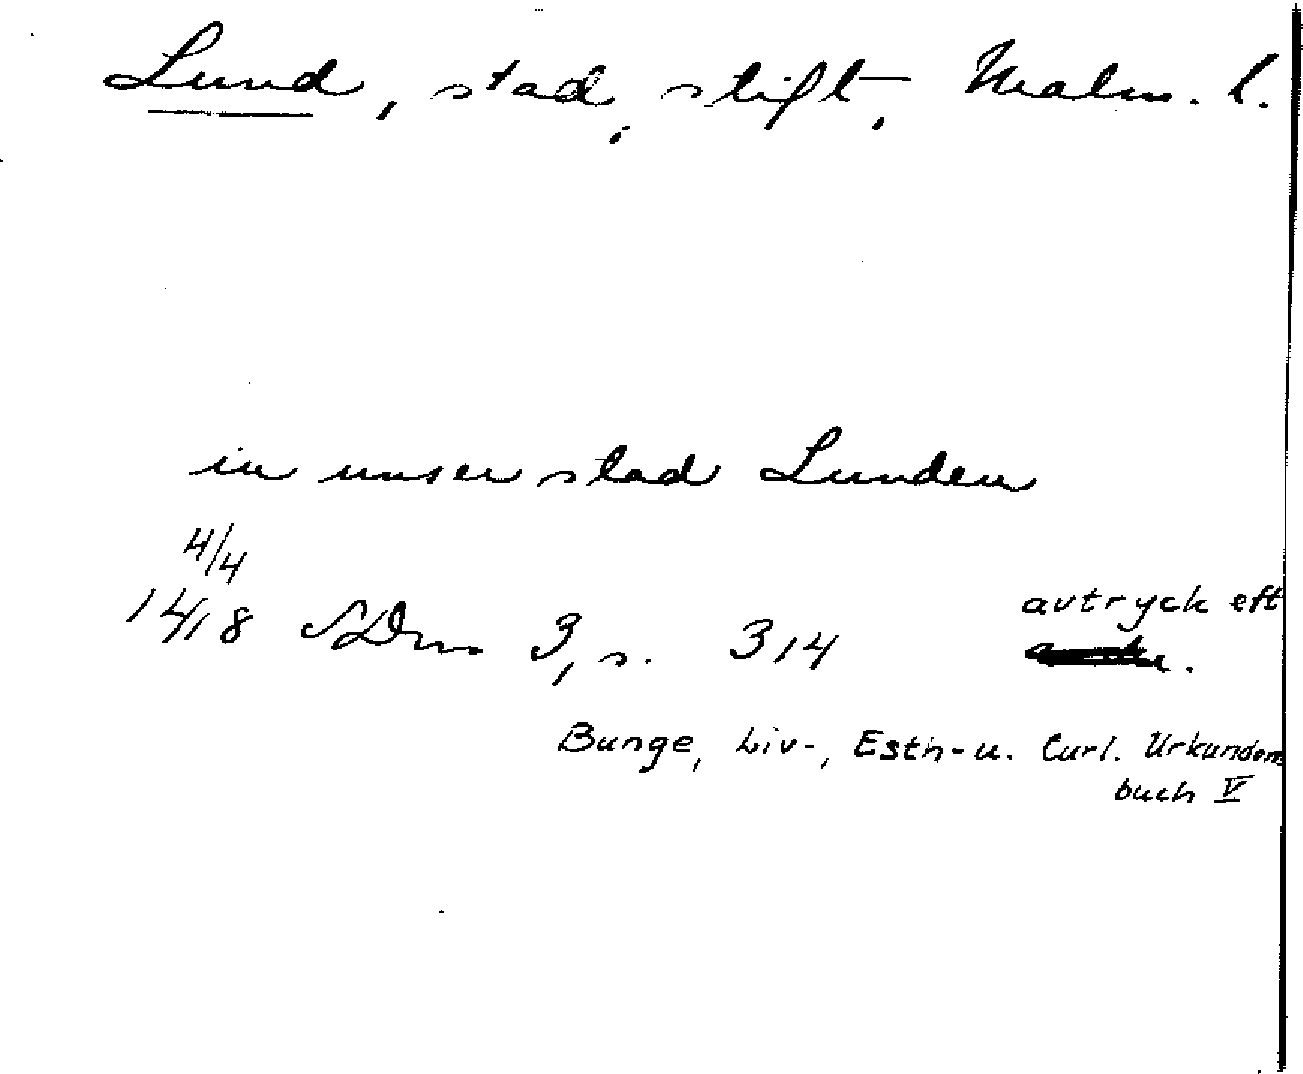 Lund, stad, stift, Malm. l.
in unser stad Lunden
4/4
1418 SDns 3, s. 314 avtryck eft
Bunge, Liv-, Esth- u. Curl. Urkunden
buch V